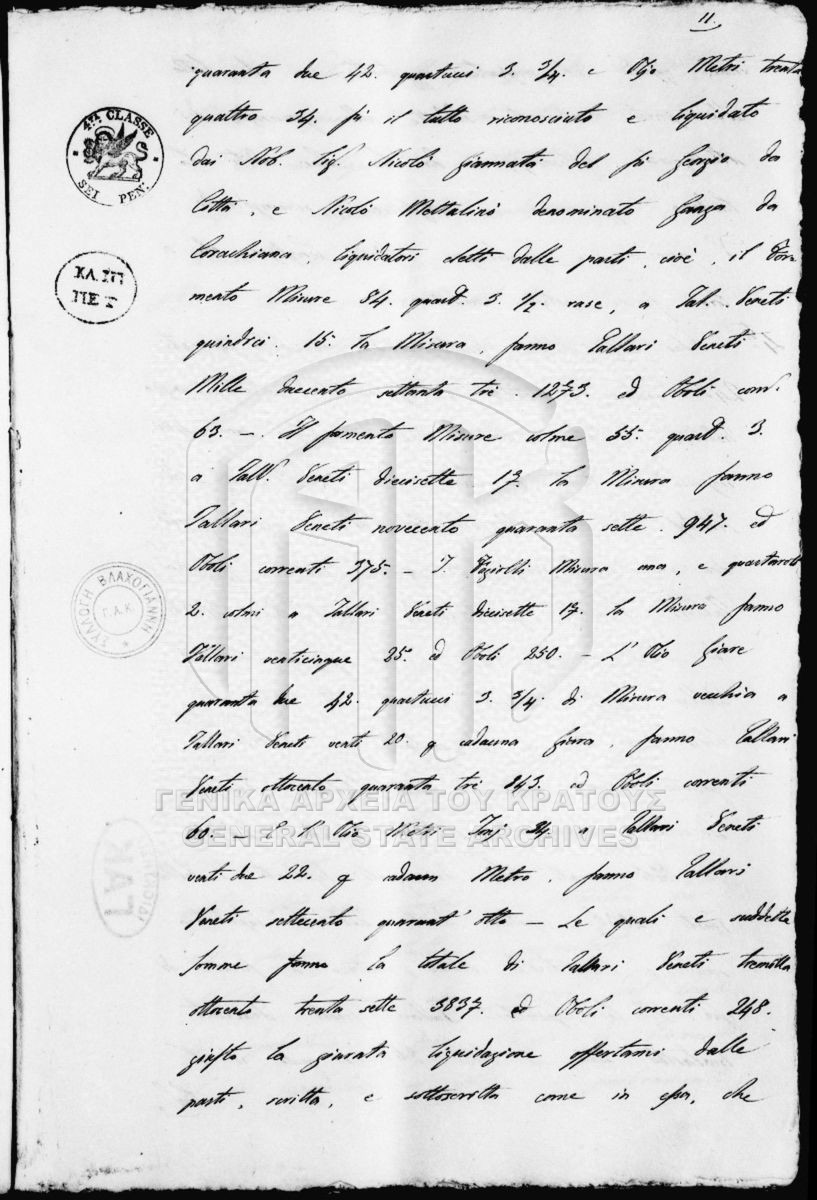 11.
quaranta due 42. quartucci 3. 3/4. e Ojo Metri trenta
quattro 34. fù il tutto riconosciuto e liquidato
dai Nob. Sig. Nicolò Giannatà del fù Giorgio da
Città, e Nicolò Mettalinò denominato Ganza da
Corachiana, liquidatori eletti dalle parti, cioè, il For
mento Misure 84. quard. 3. 1/2. rase, a Tal. Veneti
quindeci 15. la Misura, fanno Tallari Veneti
Mille duecento settanta tre. 1273. ed Oboli corr.
63. — Il formento Misure colme 55. quard. 3.
a Tall. Veneti diecisette 17. la Misura fanno
Tallari Veneti novecento quaranta sette. 947. ed
Oboli correnti 375. — I Fagiolli Misura una, e quartaroli
2. colmi a Tallari Veneti diecisette 17. la Misura fanno
Tallari venticinque 25. ed Oboli 250. — L' Olio Giare
quaranta due 42. quartucci 3. 3/4. di Misura vecchia a
Tallari Veneti venti 20. cadauna Giarra, fanno Tallari
Veneti ottocento quaranta tre 843. ed Oboli correnti
60. — E l' Olio Metri 34 a Tallari Veneti
venti due 22. cadaun Metro, fanno Tallari
Veneti settecento quarant' otto — Le quali e suddette
somme fanno la totale di Tallari Veneti tremilla
ottocento trenta sette 3837. ed Oboli correnti 248.
giusto la giurata liquidazione offertami dalle
parti, scritta, e sottoscritta come in essa, che
4TA CLASSE
SEI PEN:
ΚΛ. ΣΠ
ΠΕ Σ
ΣΥΛΛΟΓΗ ΒΛΑΧΟΓΙΑΝΝΗ
Γ.Α.Κ.
ΓΑΚ
ΓΕΝΙΚΑ ΑΡΧΕΙΑ ΤΟΥ ΚΡΑΤΟΥΣ
GENERAL STATE ARCHIVES